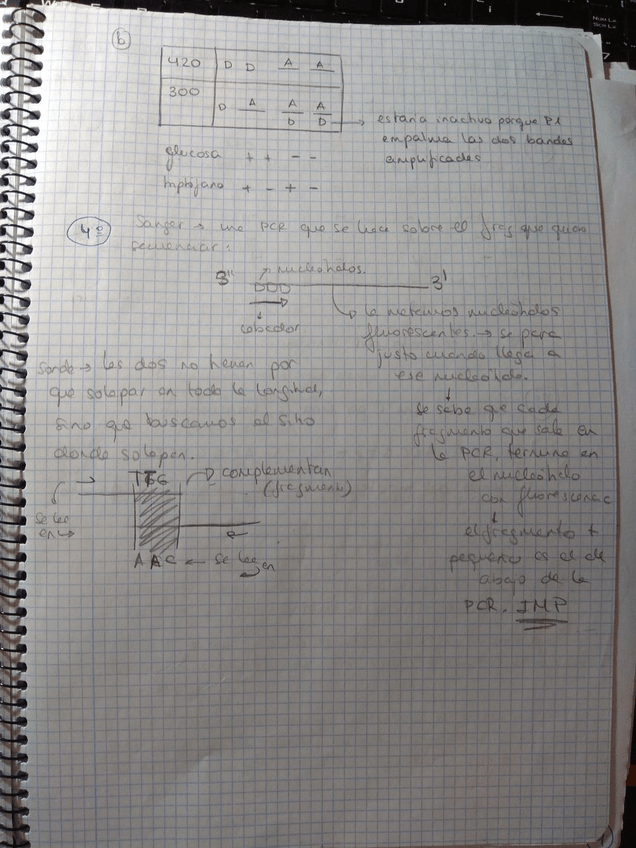 b
420 D D A A
300 D A A A
D D
→ estaría inactivo porque P1
empalma las dos bandas
amplificadas
glucosa + + - -
triptófano + - + -
4º Sanger → una PCR que se hace sobre el frag que quiero
secuenciar:
3' nucleótidos. 3'
DDD
cebador
le metemos nucleótidos
fluorescentes. → se para
justo cuando llega a
ese nucleótido.
se sabe que cada
fragmento que sale en
la PCR, termina en
el nucleótido
con fluorescencia
el fragmento +
pequeño es el de
abajo de la
PCR. IMP
→ los dos no tienen por
que solapar en toda la longitud,
sino que buscamos el sitio
donde solapen.
TTG → complementan
(fragmento)
se lee
en →
A A C ← se lee en